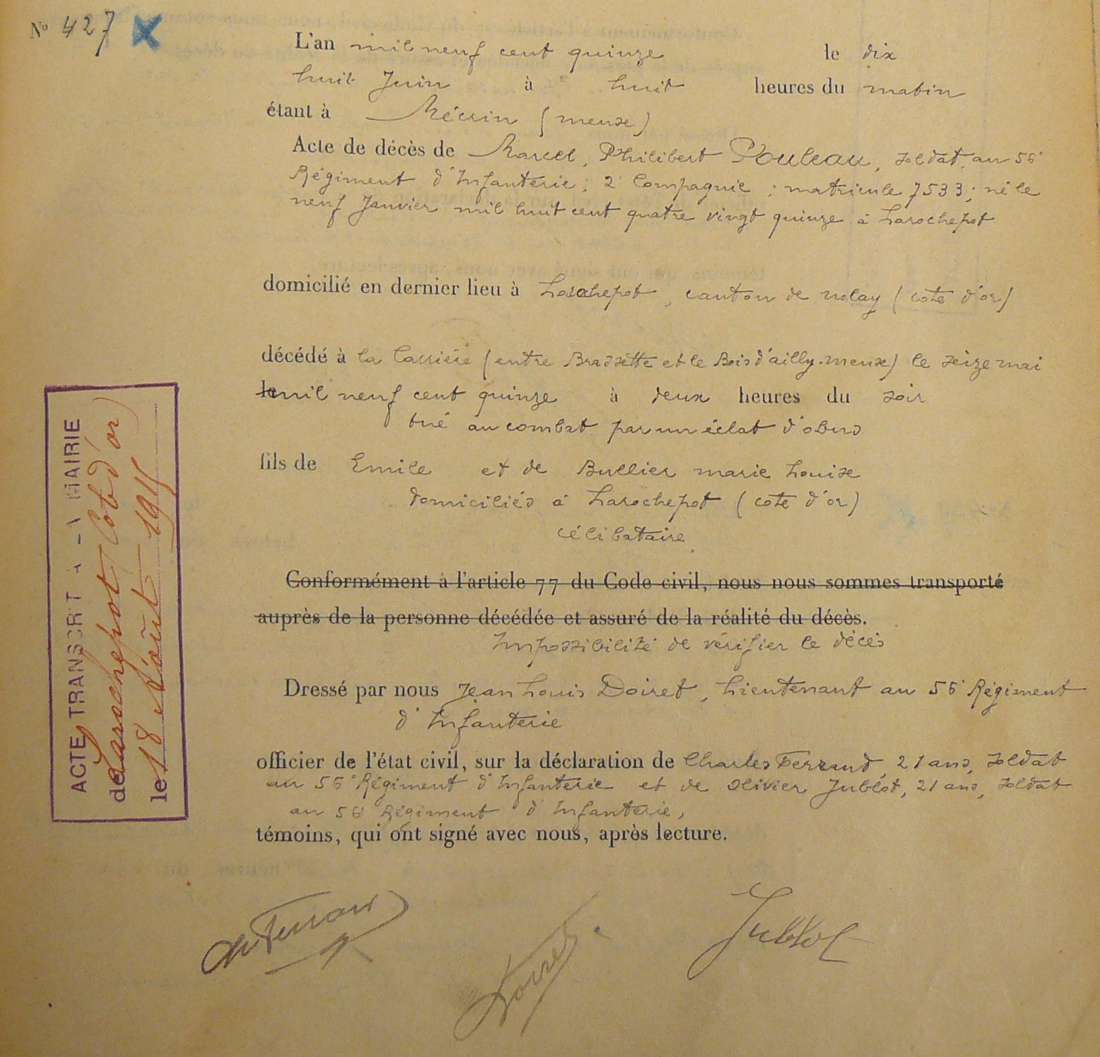 N° 427 X
L'an mil neuf cent quinze le dix
huit Juin à huit heures du matin
étant à Mécrin (meuse)
Acte de décès de Marcel, Philibert Pouleau, soldat au 56e
Régiment d'Infanterie; 2e Compagnie; matricule 7533; né le
neuf Janvier mil huit cent quatre vingt quinze à Larochepot
domicilié en dernier lieu à Larochepot, canton de nolay (cote d'or)
décédé à la Carrière (entre Brassette et le Bois d'ailly-meuse) le seize mai
le mil neuf cent quinze à deux heures du soir
tué au combat par un éclat d'obus
fils de Emile et de Bullier marie Louise
domiciliés à Larochepot (cote d'or)
célibataire
Conformément à l'article 77 du Code civil, nous nous sommes transporté
auprès de la personne décédée et assuré de la réalité du décès.
Impossibilité de vérifier le décès
Dressé par nous Jean Louis Doiret, Lieutenant au 56e Régiment
d'Infanterie
officier de l'état civil, sur la déclaration de Charles Ferrand, 21 ans, soldat
au 56e Régiment d'Infanterie et de Olivier Jublot, 21 ans, soldat
au 56e Régiment d'Infanterie,
témoins, qui ont signé avec nous, après lecture.
ch Ferrand
Doiret
Jublot
ACTE TRANSCRIT A LA MAIRIE
de Larochepot (Côte d'or)
le 18 Août 1915